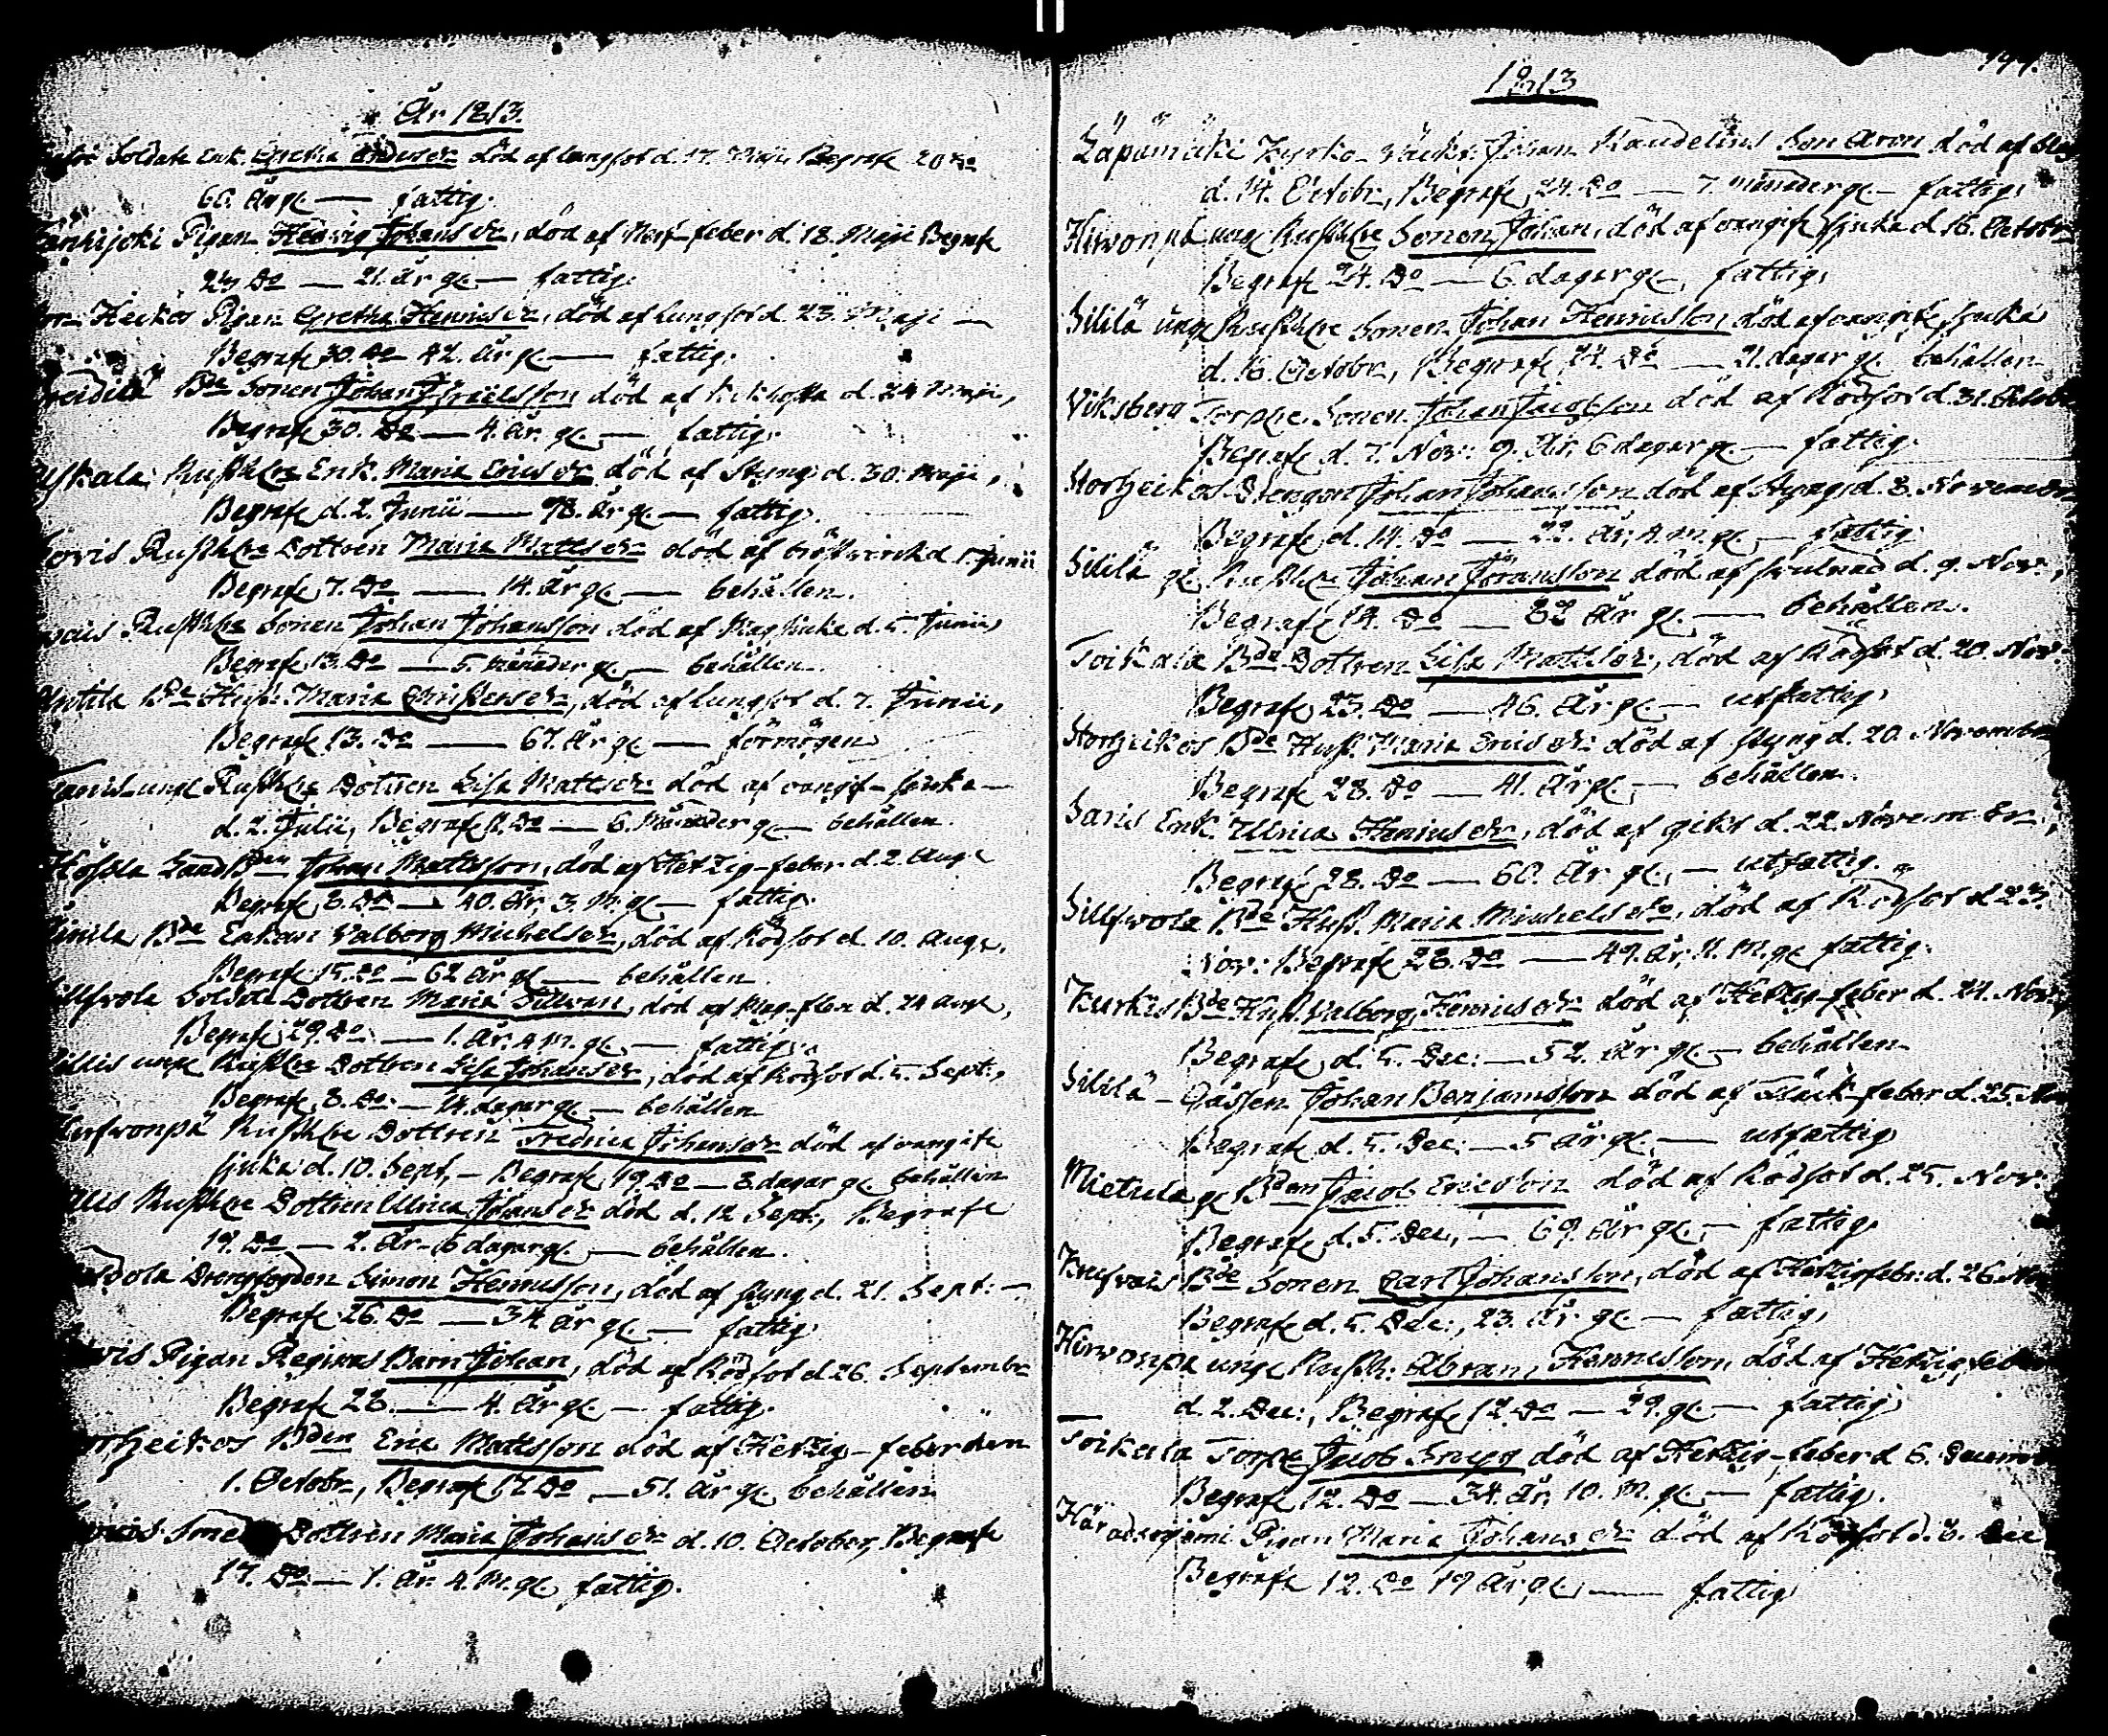 År 1813.
Soldats Enk. Gretha död af lungsot d. 17. Maji Begrafs 20 Do
60. År gl. — fattig.
Pigan Hedvig Johansdr, död af Nerf-feber d. 18. Maji Begrafs
24 Do — 21. år gl. — fattig.
Heikos Pigan Gretha Henricsdr, död af lungsot d. 23. Maji —
Begrafs 30. Do 42. år gl. — fattig.
Bde Sonen Johan Israelsson död af kikhosta d. 24 Maji,
Begrafs 30. Do — 4. År. gl. — fattig.
Rusthe Enk. Maria Ericsdr död af Styng d. 30. Maji,
Begrafs d. 2. Junii — 78. År gl. — fattig.
Rusthe Dottren Maria Mattsdr död af bröstwärk d. 1. Junii
Begrafs 7. Do — 14. År gl. — behållen.
Rusthe Sonen Johan Johansson död af Magsjuka d. 5. Junii
Begrafs 13. Do — 5. Månader gl. — behållen.
Bde Hust. Maria död af lungsot d. 7. Junii,
Begrafs 13. Do — 67. År gl. — förmögen
unge Rusthe Dottren Lisa Mattsdr död af oangif-sjuka —
d. 2. Julii, Begrafs 11. Do — 6. Månader gl. — behållen.
Johan Mattsson, död af Hetzig-feber d. 2. Aug.
Begrafs 8. Do — 40. År, 3. M. gl. — fattig.
Bde Enkan Valborg Michelsdr, död af Rödsot d. 10. Aug.
Begrafs 15. Do — 62 År gl. — behållen.
Soldats Dottren Maria död af d. 24 Aug.,
Begrafs 29. Do — 1. År. 4 M. gl. — fattig.
unge Rusthe Dottren Lisa Johansdr, död af Rödsot d. 5. Sept.,
Begrafs 8. Do — 14. dagar gl. — behållen
Rusthe Dottren Fredrica Johansdr död af oangifs
sjuka d. 10. Sept, — Begrafs 19 Do — 8. dagar gl. behållen
Rusthe Dottren Ulrica Johansdr död d. 12 Sept., Begrafs
19. Do — 2. År 6 dagar gl. — behållen.
Drengfogden Simon Henricsson, död af styng d. 21. Sept: —
Begrafs 26. Do — 34 År gl. — fattig
Pigan Reginas Barn Johan, död af Rödsot d 26. Septembr
Begrafs 28. — 4. År gl. — fattig.
Bden Eric Mattsson död af Hetzig-feber den
1. Octobr, Begrafs 17. Do — 51. år gl. behållen
Dottren Maria Johansdr d. 10. October, Begrafs
17. Do — 1. År. 4. M. gl. fattig.
1813
Kyrko- Johan Kandelins Son Aron död af
d. 14. Octobr, Begrafs, 24. Do — 7. Månader gl. — fattig,
Hirvonpä unge Rusthe Sonen Johan, död af oangifs sjuka d 16. Octobr
Begrafs 24. Do — 6. dagar gl., fattig,
Sililä unge Rusthe Sonen Johan Henricsson död af oangifs sjuka
d. 16. Octobr, Begrafs, 24. Do — 21. dagar gl. behållen
Viksberg Torpe Sonen Johan Jacobsson död af Rödsot d. 31. Octobr
Begrafs d. 7. Nov: 9. År, 6 dagar gl. — fattig.
Storheikos Drengen Johan Johansson död af styng d. 8. Novembr
Begrafs d. 14. Do — 22. År, 4. m. gl. — fattig.
Sililä gl. Rusthe Johan Jöransson död af d. 9. Nov:,
Begrafs 14. Do — 82 År gl. — behållen.
Toikala Bde Dottren Lisa Mattsdr, död af Rödsot d. 20. Nov.
Begrafs 23. Do — 46. År gl. — utfattig,
Storheikos Bde Hust. Maria Ericsdr död af styng d. 20. Novembr
Begrafs 28. Do — 41. År gl. — behållen.
Saris Enk. Ulrica Henricsdr, död af gikt d. 22. November,
Begrafs 28. Do — 60. År gl. — utfattig.
Sillfvola Bde Hust. Maria Michelsdr, död af Rödsot d 23.
Nov: Begrafs 28. Do — 49. År, 11. M. gl. fattig.
Kurkis Bde Hust. Valborg Henricsdr död af Hetzig-feber d. 24. Nov:
Begrafs d. 5. Dec: — 52. År gl. — behållen
Sililä — Gossen Johan Benjamsson död af Fläck-feber d. 25. Nov
Begrafs d. 5. Dec: — 5 År gl. — utfattig
Mietula gl. Bden Jacob Ericsson död af Rödsot d. 25. Nov:
Begrafs d. 5. Dec, — 69. År gl. — fattig,
Bde Sonen Carl Johansson, död af Hetzigfebr: d. 26. Nov
Begrafs d. 5. Dec:, 23. År gl. — fattig,
Hirvonpä unge Rusth: Abram Henricsson, död af Hetzig feber
d. 2. Dec:, Begrafs 12. Do — 29. gl. — fattig,
Toikala Torpe Jacob död af Hetzig-feber d 6. Decemb
Begrafs 12. Do — 34. År, 10. M. gl. — fattig.
Pigan Maria Johansdr död af Rödsot d. 8. Dec
Begrafs 12. Do 19 År gl. — fattig